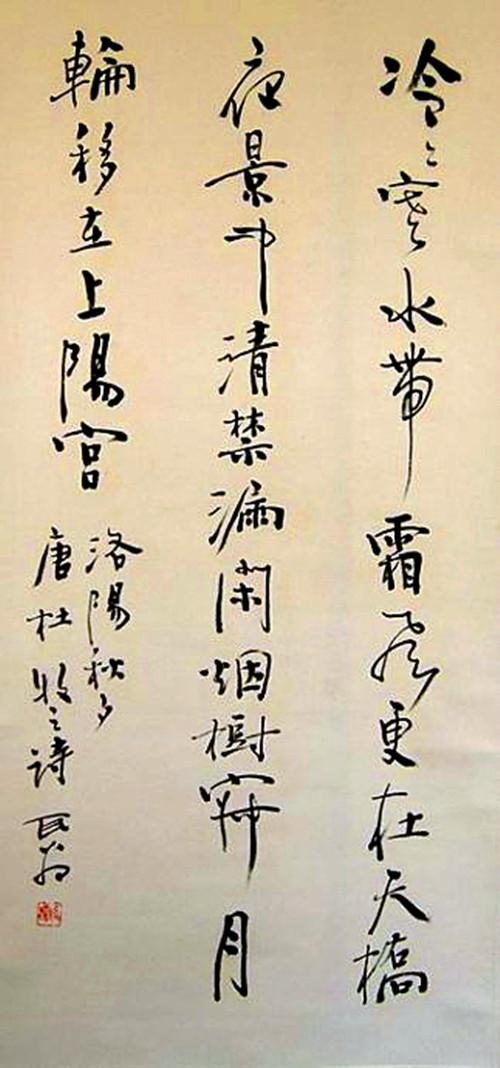 冷〻寒水帶霜風更在天橋
夜景中清禁漏閑烟樹寂月
輪移在上陽宮
洛陽秋夕
唐杜牧之詩 瓦翁